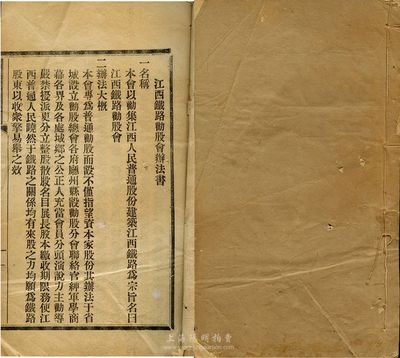 江西鐵路勸股會辦法書
一名稱
本會以勸集江西人民普通股份建築江西鐵路為宗旨名曰
江西鐵路勸股會
二辦法大概
本會專為普通勸股而設不僅指望資本家股份其辦法于省
城設立勸股總會各府廳州縣設勸股分會聯絡官紳軍學商
界各界及各處城鄉之公正人充當會員分頭演說力主勸導
嚴禁擾派更分立整股散股名目展長股本繳收期限務使江
西普通人民曉然于鐵路之關係均有來股之力均願為鐵路
股東以收衆擎易舉之效
上海陽明拍賣